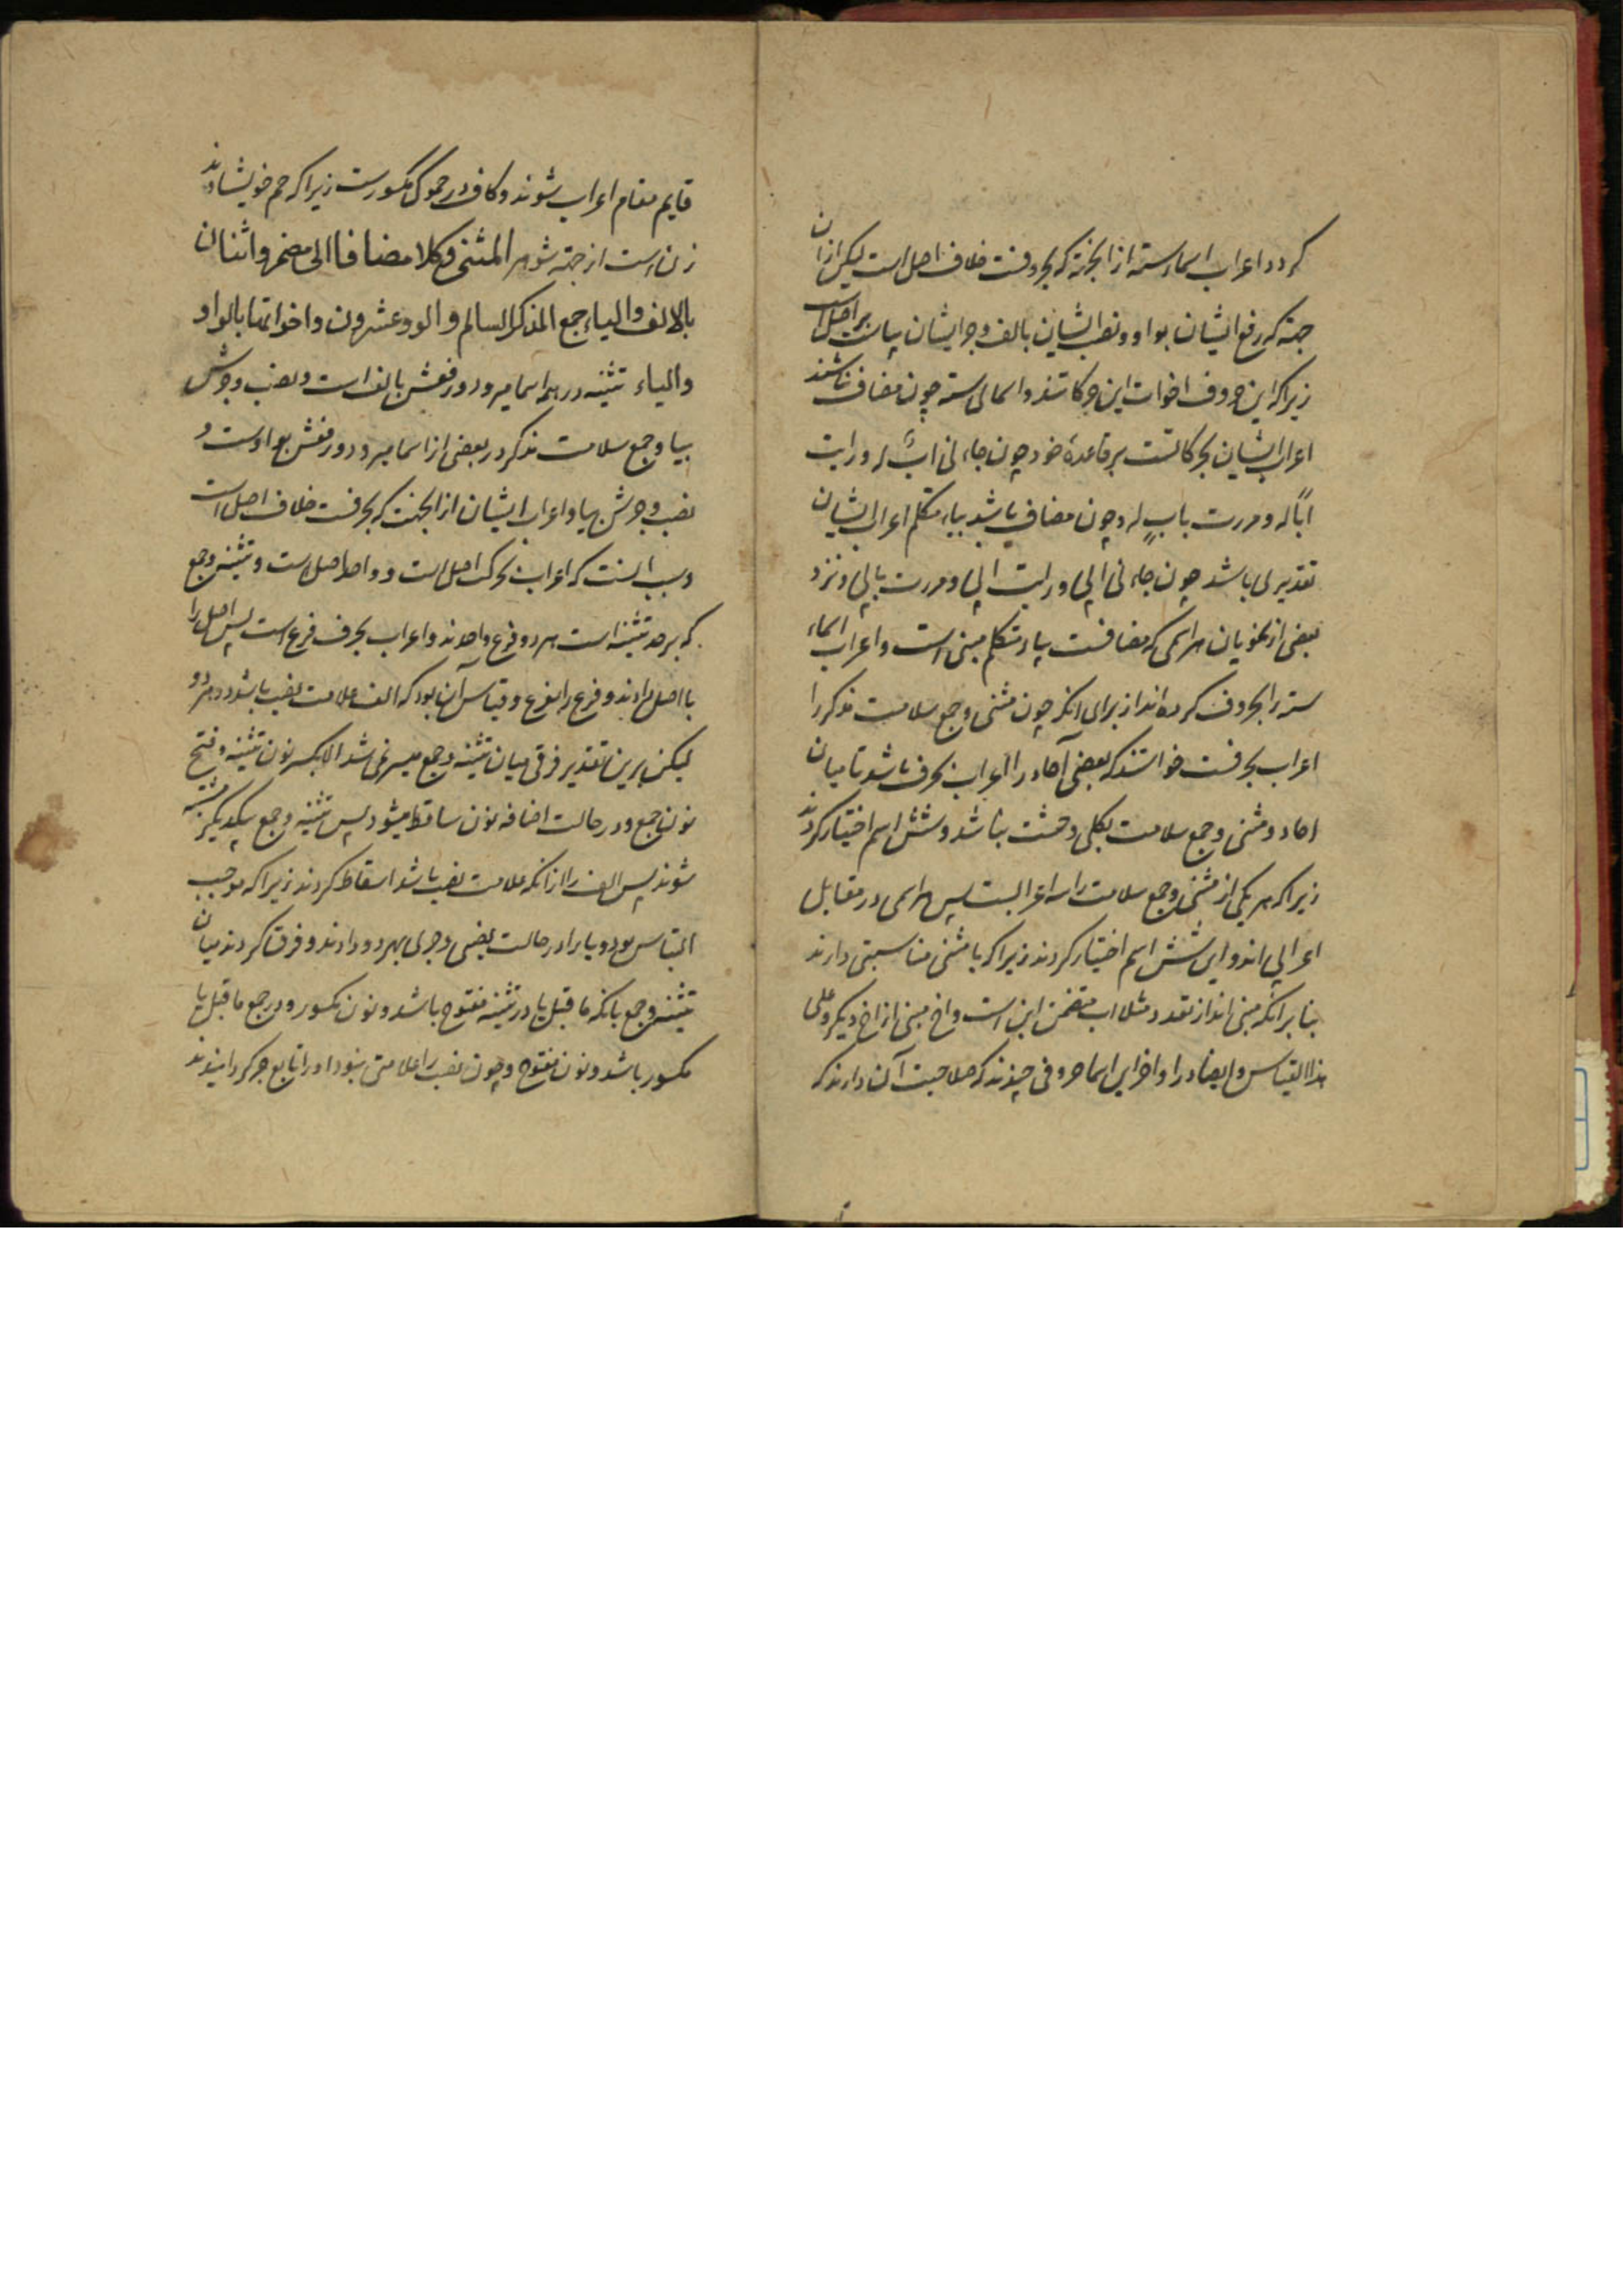 کردد اعراب اسماء سته ازانجهة که بحروفست خلاف اصل است لیکن ازان
جهة که رفع ایشان بواو و نصب ایشان بالف و جر ایشان بیاست بر اصل است
زیرا که این حروف اخوات این حرکاتند و اسمای سته چون مضاف نباشند
اعراب ایشان بحرکاتست بر قاعده خود چون جاءنی اب له و رایت
اباً له و مررت بابٍ له و چون مضاف باشد بیاء متکلم اعراب ایشان
تقدیری باشد چون جاءنی ابی و رایت ابی و مررت بابی و نزد
بعضی از نحویان هر اسمی که مضافست بیاء متکلم مبنی است و اعراب اسماء
سته را بحروف کرده اند از برای آنکه چون مثنی و جمع سلامت مذکر را
اعراب بحرفست خواستند که بعضی آحاد را اعراب بحرف باشد تا میان
احاد و مثنی و جمع سلامت بکلی وحشت نباشد و شش اسم اختیار کردند
زیرا که هر یکی از مثنی و جمع سلامت را سه اعرابست پس هر اسمی در مقابل
اعرابی اند و این شش اسم اختیار کردند زیرا که با مثنی مناسبتی دارند
بنابر آنکه مبنی اند از تعدد مثلا اب متضمن ابن است و اخ مبنی از اخ دیگر و علی
هذا القیاس و ایضا در اواخر این اسما حروفی چندند که صلاحیت آن دارند که
قایم مقام اعراب شوند و کاف در حموک مکسورست زیرا که حم خویشاوند
زن است از جهة شوهر المثنی وکلا مضافا الی مضمر واثنان
بالالف والیاء جمع المذکر السالم والو وعشرون واخواتها بالواو
والیاء تثنیه در همه اسما میرود و رفعش بالف است و نصب و جرش
بیا و جمع سلامت مذکر در بعضی از اسما میرود و رفعش بواوست و
نصب و جرش بیا و اعراب ایشان ازانجهت که بحرفست خلاف اصل است
و سبب آنست که اعراب بحرکت اصل است و واحد اصل است و تثنیه و جمع
که بر حد تثنیه است هر دو فرع واحدند و اعراب بحرف فرع است پس اصل را
با اصل دادند و فرع را بفرع و قیاس آن بود که الف علامت نصب باشد در هر دو
لیکن برین تقدیر فرقی میان تثنیه و جمع میسر نمی شد الا بکسر نون تثنیه و فتح
نون جمع و در حالت اضافه نون ساقط میشود پس تثنیه و جمع بیکدیگر مشتبه
شوند پس الف را ازانکه علامت نصب باشد اسقاط کردند زیرا که موجب
التباس بود و یا را در حالت نصبی و جری بهر دو دادند و فرق کردند میان
تثنیه و جمع بانکه ما قبل یا در تثنیه مفتوح باشد و نون مکسور و در جمع ما قبل یا
مکسور باشد و نون مفتوح و چون نصب را علامتی نبود او را تابع جر کردانیدند